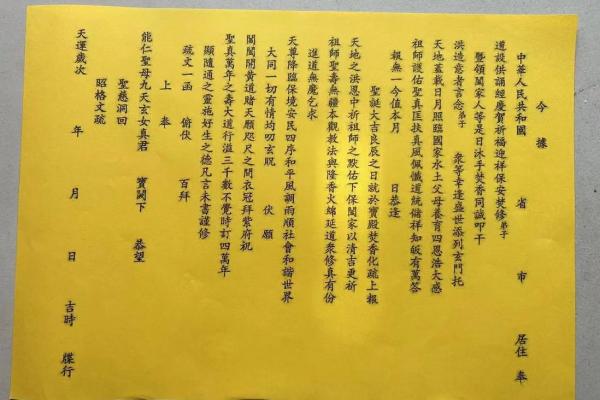 今據
中華人民共和國 省 市 居住 奉
道設供誦經慶賀祈福迎祥保安焚修弟子
暨領闔家人等是日沐手焚香同誠叩干
洪造意者言念弟子 眾等幸逢盛世添列玄門托
天地蓋載日月照臨國家水土父母養育四恩浩大感
祖師護佑聖真匡扶真風佩懺道統備祥知皈有萬荅
報無一今值本月 日恭逢
聖誕大吉良辰之日就於寶殿焚香化疏上報
天地之洪恩中祈祖師之默佑下保闔家以清吉更祈
祖師聖壽無疆本觀教法與隆香火綿延道眾修真有份
進道無魔乞求
天尊降臨保境安民四序和平風調雨順社會和諧世界
大同一切有情均叨玄貺 伏願
閶闔開黃道睹天顏咫尺之間衣冠拜紫府祝
聖真萬年之壽大道行溢三千數不覺時訂四萬年
顯隨通之靈施好生之德凡言未書謹修
疏文一函 俯伏 百拜
上奉
能仁聖母九天玄女真君 寶闕下 恭望
聖慈洞回
昭格文疏
天運歲次 年 月 日 吉時 牒行